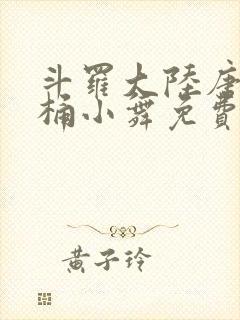 斗羅大陸唐
桶小舞免費
黃子玲